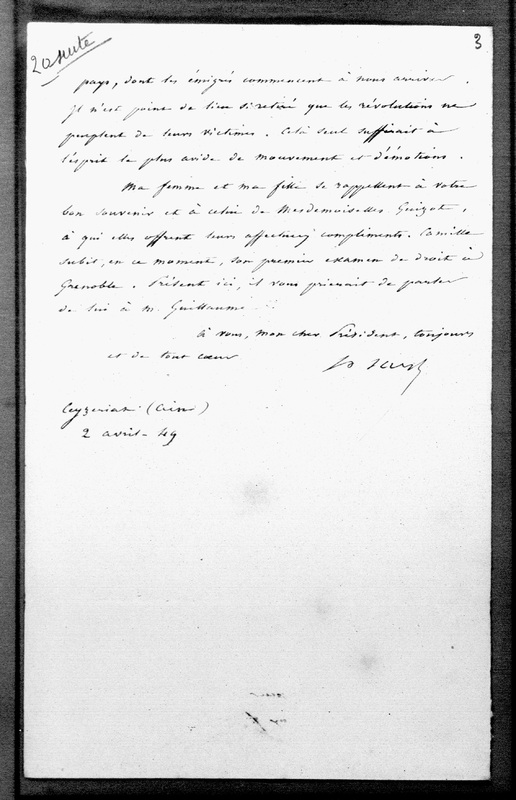 2a suite
3
pays, dont les émigrés commencent à nous arriver.
Il n'est point de lieu si retiré que les révolutions ne
peuplent de leurs victimes. Celà seul suffirait à
l'esprit le plus avide de mouvement et d'émotions.
Ma femme et ma fille se rappellent à votre
bon souvenir et à celui de Mesdemoiselles Guizot,
à qui elles offrent leurs affectueux compliments. Camille
subit, en ce moment, son premier examen de droit à
Grenoble. Présent ici, il vous prierait de parler
de lui à M. Guillaume.
à vous, mon cher Président, toujours
et de tout cœur
Ceyzériat (Ain)
2 avril-49